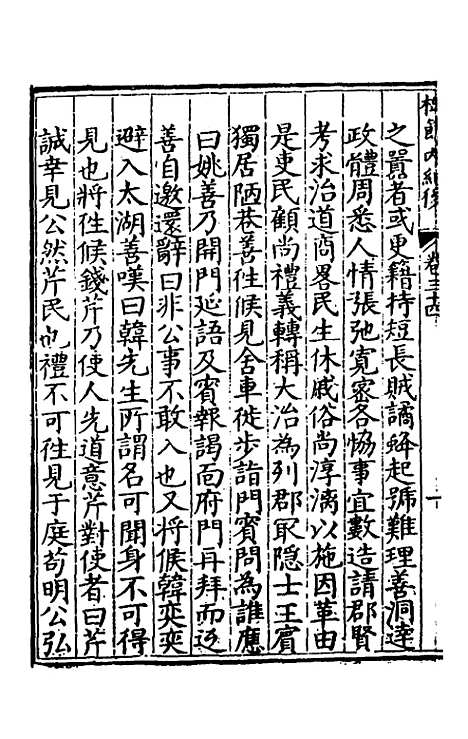 之嚚者或更籍持短長賊譎蜂起號難理善洞達
政體周悉人情張弛寛密各恊事宜數造請郡賢
考求治道商畧民生休戚俗尚淳漓以施因革由
是吏民顧尚禮義轉稱大治為列郡最隐士王賔
獨居陋巷善徃候見舍車徙步詣門賔問為誰應
曰姚善乃開門延語及賔報謁靣府門再拜而返
善自邀還辭曰非公事不敢入也又將候韓奕奕
避入太湖善嘆曰韓先生所謂名可聞身不可得
見也將徃候錢芹乃使人先道意芹對使者曰芹
誠幸見公然芹民也禮不可徃見于庭苟明公弘
卷三十四